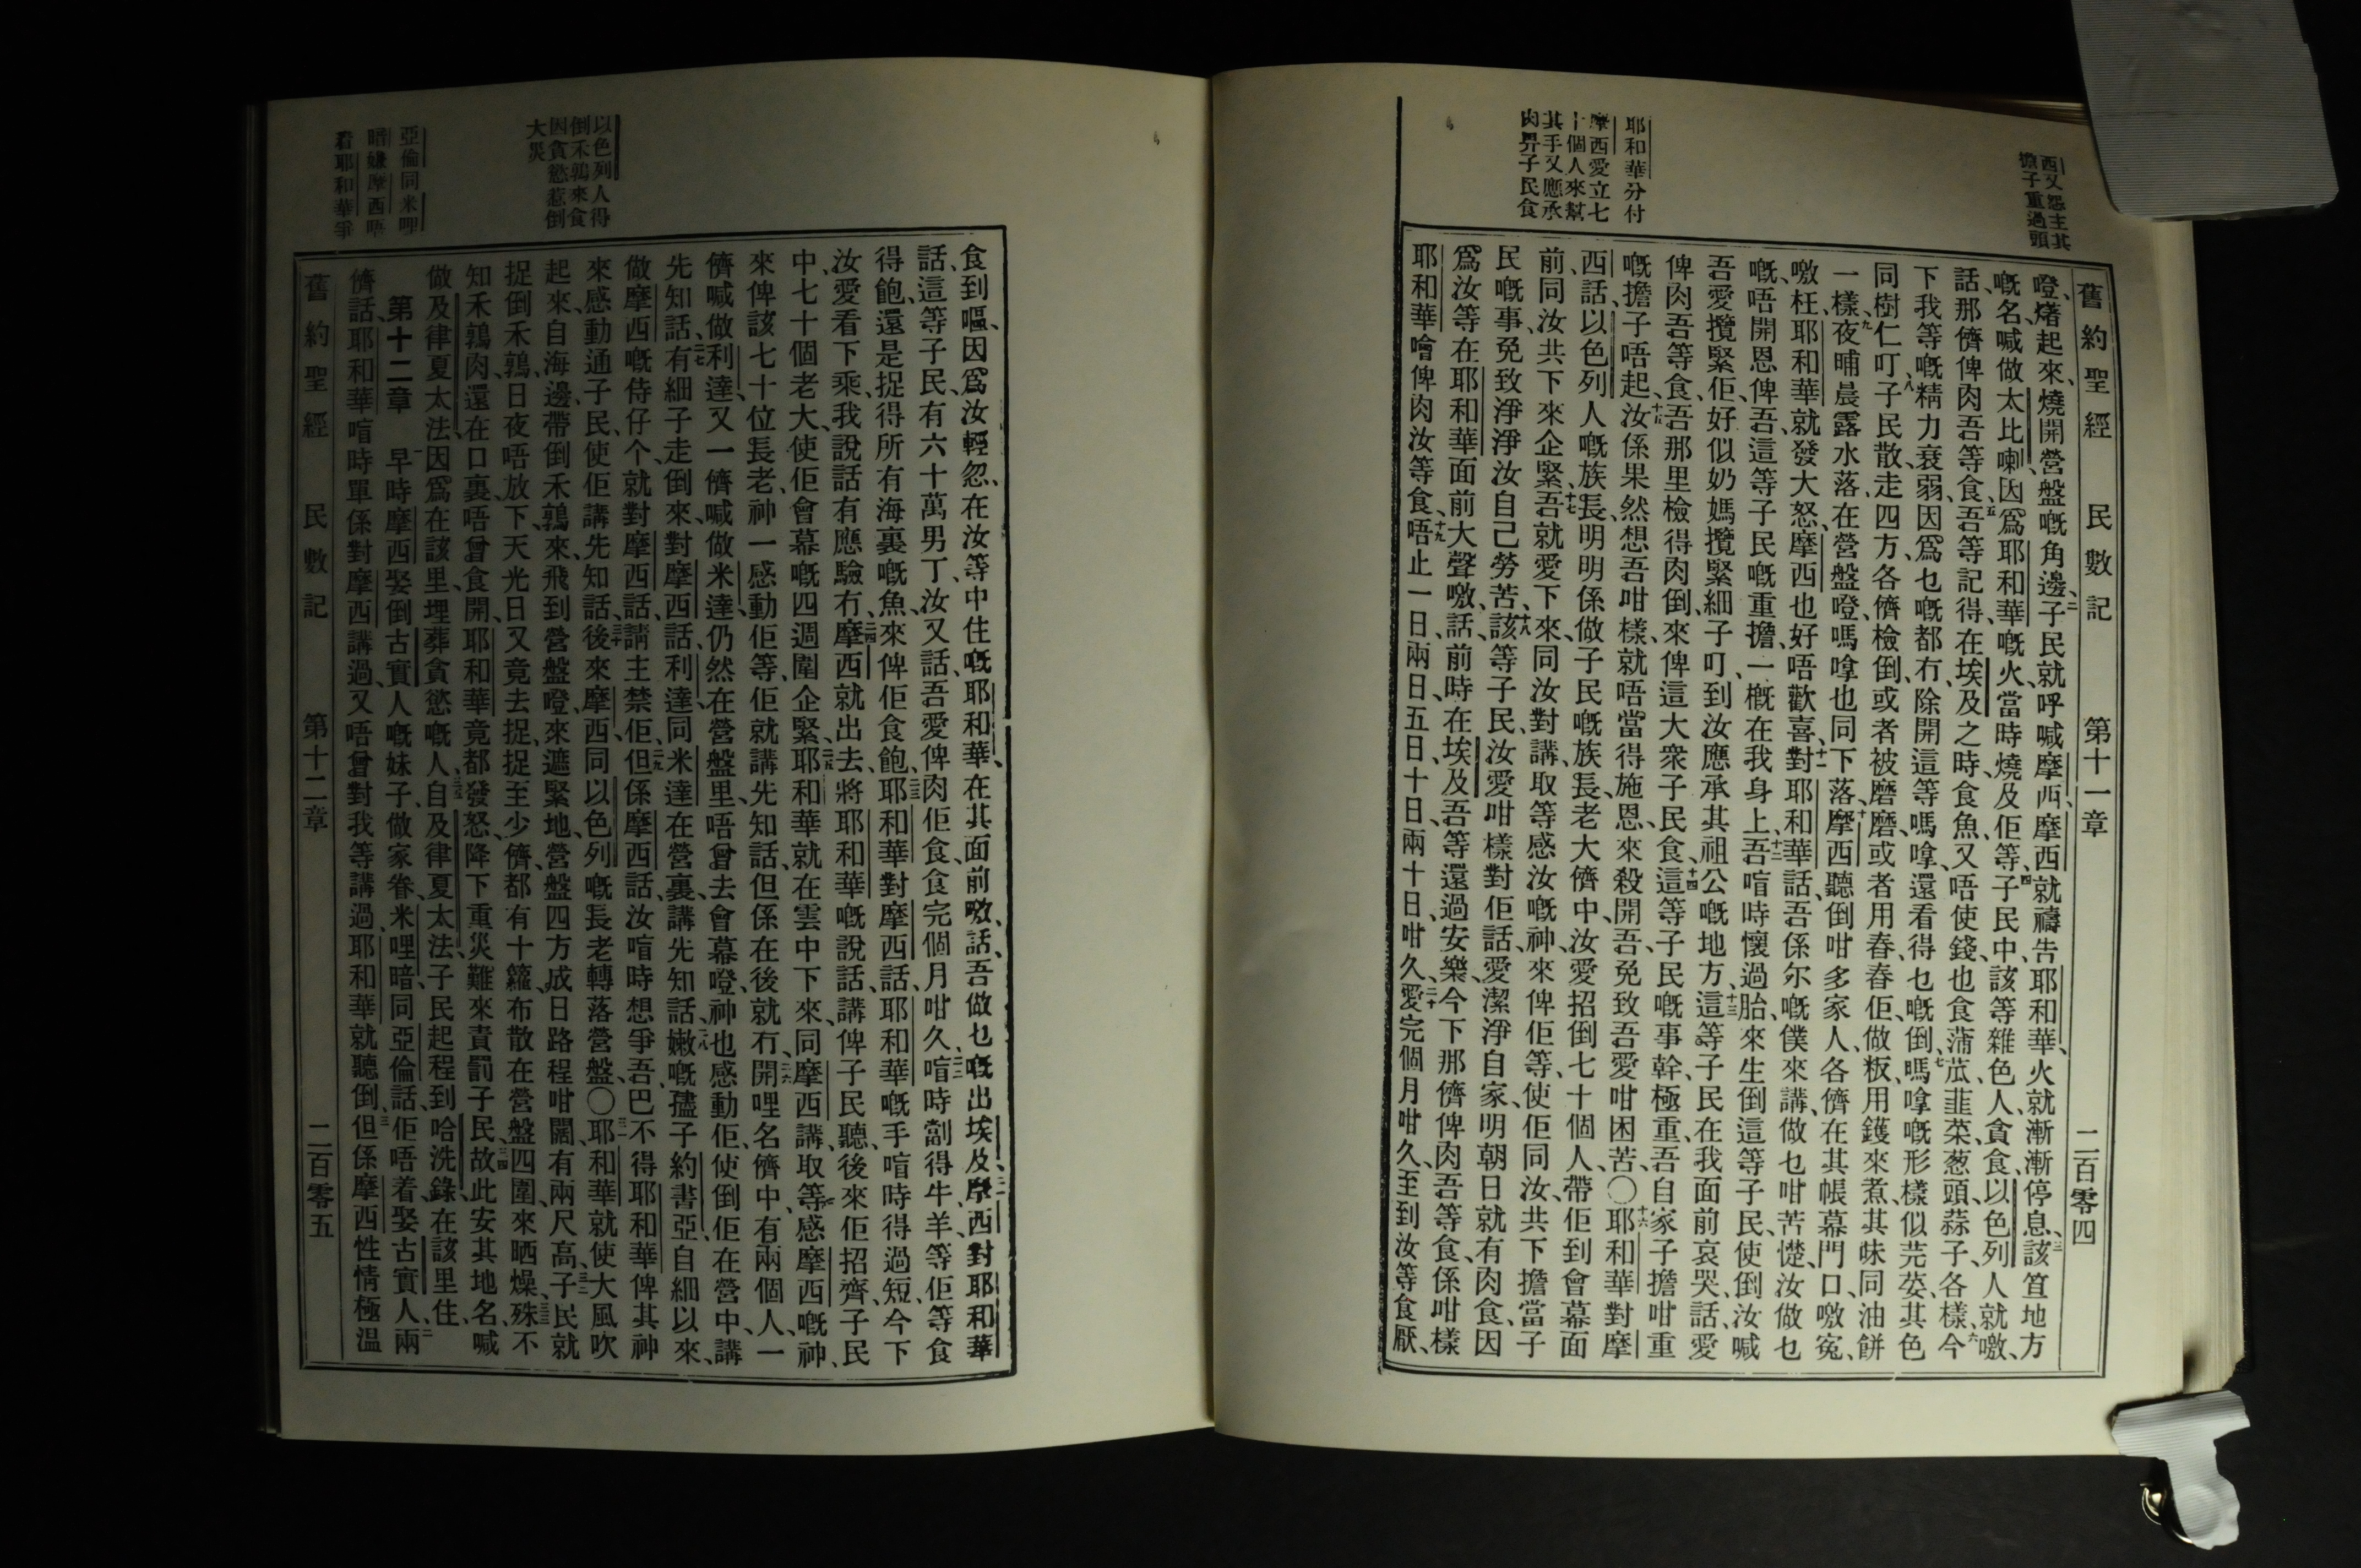 舊約聖經 民數記 第十一章 二百零四
西又怨主其
擔子重過頭
耶和華分付
摩西愛立七
十個人來幫
其手又應承
肉畀子民食
㬿、㷮起來、燒開營盤嘅角邊、二子民就呼喊摩西、摩西就禱告耶和華、火就漸漸停息、三該笪地方
嘅名喊做太比喇、因爲耶和華嘅火當時燒及佢等、四子民中、該等雜色人、貪食、以色列人就噭、
話、那儕俾肉吾等食、五吾等記得在埃及之時食魚、又唔使錢、也食蒲苽、韭菜、葱頭、蒜子、各樣、六今
下我等嘅精力衰弱、因爲乜嘅都冇、除開這等嗎嗱、還看得乜嘅倒、七嗎嗱嘅形樣似芫荽、其色
同樹仁叮、八子民散走四方、各儕檢倒、或者被磨磨、或者用舂舂佢、做粄、用鑊來煮、其味同油餅
一樣、九夜晡晨露水落在營盤㬿、嗎嗱也同下落、十摩西聽倒咁多家人、各儕在其帳幕門口噭寃、
噭枉、耶和華就發大怒、摩西也好唔歡喜、十一對耶和華話、吾係尔嘅僕、來講、做乜咁苦憷、汝做乜
嘅、唔開恩俾吾、這等子民嘅重擔、一概在我身上、十二吾喧時懷過胎、來生倒這等子民、使倒汝喊
吾愛攬緊佢、好似奶媽攬緊細子叮、到汝應承其祖公嘅地方、十三這等子民在我面前哀哭、話、愛
俾肉吾等食、吾那里檢得肉倒、來俾這大衆子民食、十四這等子民嘅事幹、極重、吾自家子擔咁重
嘅擔子唔起、十五汝係果然想吾咁樣、就唔當得施恩、來殺開吾、免致吾愛咁困苦、〇十六耶和華對摩
西話、以色列人嘅族長、明明係做子民嘅族長、老大儕中、汝愛招倒七十個人、帶佢到會幕面
前、同汝共下來企緊、十七吾就愛下來、同汝對講、取等感汝嘅神、來俾佢等、使佢同汝、共下擔當子
民嘅事、免致淨淨汝自己勞苦、十八該等子民、汝愛咁樣對佢話、愛潔淨自家、明朝日就有肉食、因
爲汝等在耶和華面前大聲噭、話、前時在埃及吾等還過安樂、今下那儕俾肉吾等食、係咁樣
耶和華噲俾肉汝等食、十九唔止一日、兩日、五日、十日、兩十日、咁久、二十愛完個月咁久、至到汝等食厭、
以色列人得
倒禾鶉來食
因貪慾惹倒
大災
亞倫同米哩
暗嫌摩西唔
着耶和華爭
食到嘔、因爲汝輕忽、在汝等中住嘅耶和華、在其面前噭、話、吾做乜嘅出埃及、二一摩西對耶和華
話、這等子民有六十萬男丁、汝又話、吾愛俾肉佢食、食完個月咁久、二二喧時劏得牛羊、等佢等食
得飽、還是捉得所有海裏嘅魚、來俾佢食飽、二三耶和華對摩西話、耶和華嘅手喧時得過短、今下
汝愛看下乘、我說話有應驗冇、二四摩西就出去、將耶和華嘅說話、講俾子民聽、後來佢招齊、子民
中、七十個老大、使佢會幕嘅四週圍企緊、二五耶和華就在雲中下來、同摩西講、取等感摩西嘅神、
來俾該七十位長老、神一感動佢等、佢就講先知話、但係在後就冇、二六開哩名儕中、有兩個人、一
儕喊做利達、又一儕、喊做米達、仍然在營盤里、唔曾去會幕㬿、神也感動佢、使倒佢在營中、講
先知話、二七有細子走倒來、對摩西話、利達同米達在營裏、講先知話、二八嫩嘅孻子約書亞、自細以來、
做摩西嘅侍仔个、就對摩西話、請主禁佢、二九但係摩西話、汝喧時想爭吾、巴不得耶和華俾其神
來感動通子民、使佢講先知話、三十後來摩西同以色列嘅長老轉落營盤、〇三一耶和華就使大風吹
起來、自海邊、帶倒禾鶉來、飛到營盤㬿、來遮緊地、營盤四方成日路程咁闊、有兩尺高、三二子民就
捉倒禾鶉、日夜唔放下、天光日又竟去捉、捉至少儕、都有十籮、布散在營盤四圍、來晒燥、三三殊不
知禾鶉肉、還在口裏、唔曾食開、耶和華竟都發怒、降下重災難來責罰子民、三四故此安其地名、喊
做及律夏太法、因爲在該里、埋葬貪慾嘅人、三五自及律夏太法、子民起程到哈洗錄、在該里住、
第十二章 一早時摩西娶倒古實人嘅妹子、做家眷、米哩暗、同亞倫話、佢唔着娶古實人、二兩
儕話、耶和華喧時單係對摩西講過、又唔曾對我等講過、耶和華就聽倒、三但係摩西性情極温
舊約聖經 民數記 第十二章 二百零五